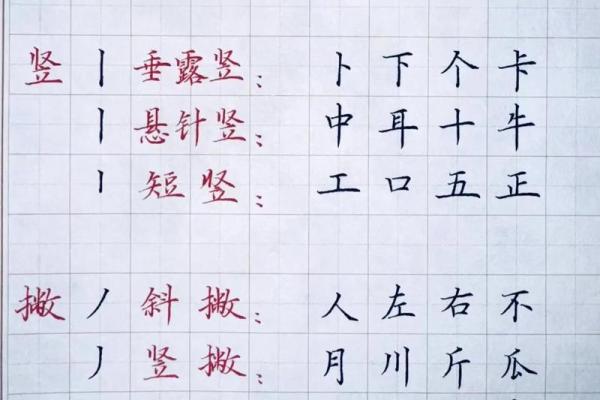 竖 丨 垂露竖: 卜 下 个 卡
丨 悬针竖: 中 耳 十 牛
丨 短竖: 工 口 五 正
撇 丿 斜撇: 人 左 右 不
丿 竖撇: 月 川 斤 瓜